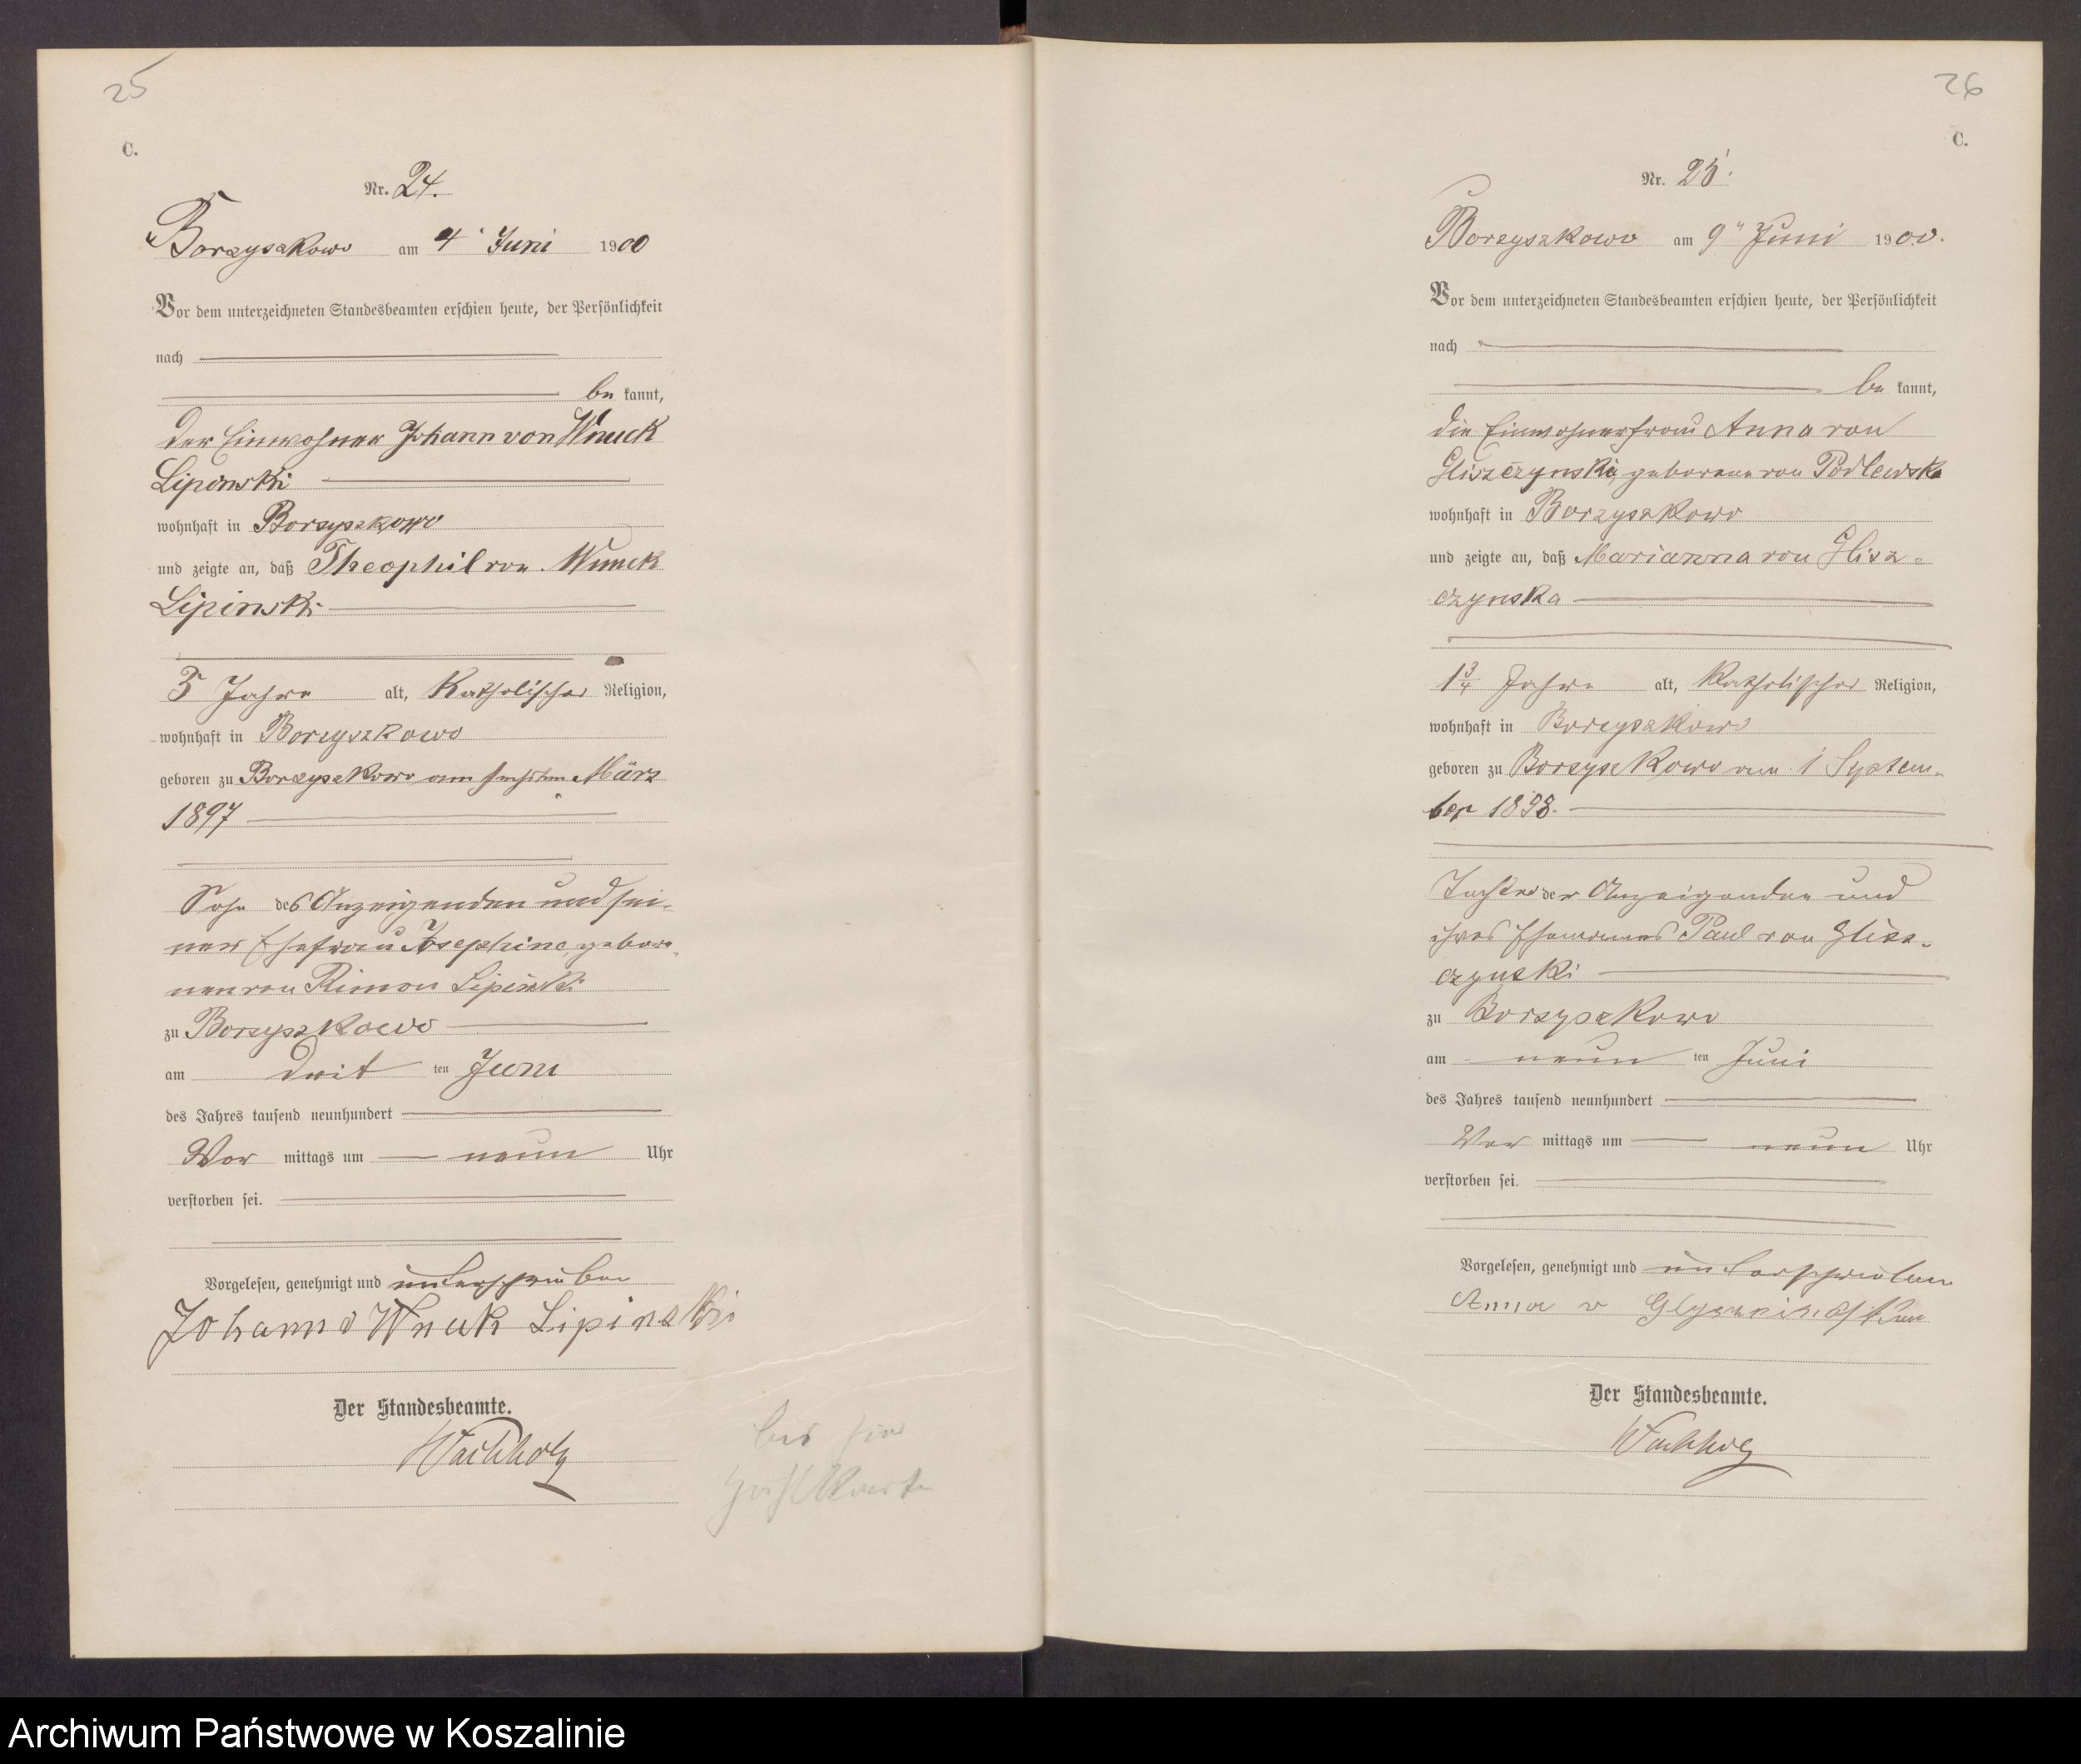 25
C.
Nr. 24.
Borzyszkowo am 4" Juni 1900
Vor dem unterzeichneten Standesbeamten erschien heute, der Persönlichkeit
nach
be kannt,
der Einwohner Johann von Wnuck
Lipinski
wohnhaft in Borzyszkowo
und zeigte an, daß Theophil von Wnuck
Lipinski
Jahre alt, katholischer Religion,
wohnhaft in Borzyszkowo
geboren zu Borzyszkowo am März
1897
Sohn des Anzeigenden und sei-
ner Ehefrau Josephine, gebore-
nen von Rimon Lipinski
zu Borzyszkowo
am dritten Juni
des Jahres tausend neunhundert
Vor mittags um neun Uhr
verstorben sei.
Vorgelesen, genehmigt und unterschrieben
Johann v Wnuk Lipinski
Der Standesbeamte.
Wachholz
26
C.
Nr. 25.
Borzyszkowo am 9" Juni 1900.
Vor dem unterzeichneten Standesbeamten erschien heute, der Persönlichkeit
nach
be kannt,
die Einwohnerfrau Anna von
Gliszczynski, geborene von Podlewska
wohnhaft in Borzyszkowo
und zeigte an, daß Marianna von Glisz-
czynska
1 3/4 Jahre alt, katholischer Religion,
wohnhaft in Borzyszkowo
geboren zu Borzyszkowo am 1 Septem-
ber 1898.
Tochter der Anzeigenden und
ihres Ehemannes Paul von Glisz-
czynski
zu Borzyszkowo
am neun ten Juni
des Jahres tausend neunhundert
Vor mittags um neun Uhr
verstorben sei.
Vorgelesen, genehmigt und unterschrieben
Anna v
Der Standesbeamte.
Wachholz
Archiwum Państwowe w Koszalinie